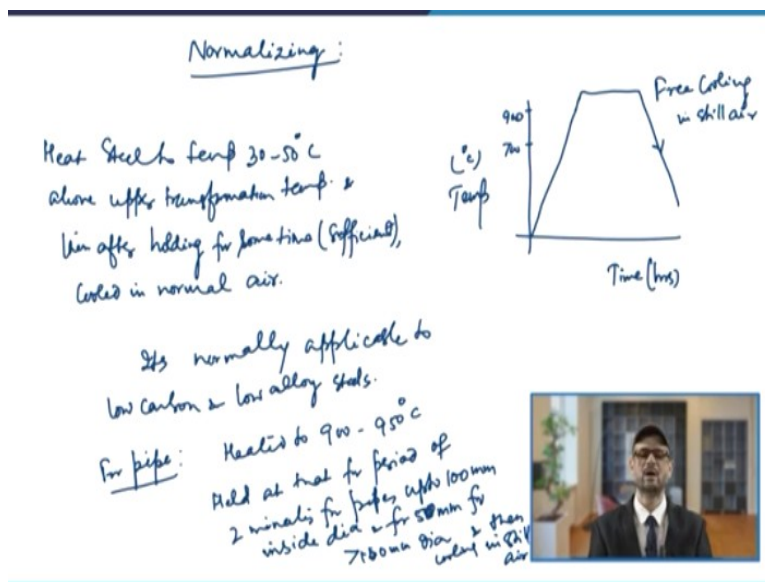 Normalizing :
Heat Steel to temp 30-50°C
above upper transformation temp. &
then after holding for some time (sufficient),
cooled in normal air.
Its normally applicable to
low carbon & low alloy steels.
For pipe : Heated to 900 - 950°C
Held at that for period of
2 minutes for pipes upto 100mm
inside dia & for 5 mm for
>100mm dia & then
cooling in still
air
Free Cooling
in still air
900
700
(°C)
Temp
Time (hrs)